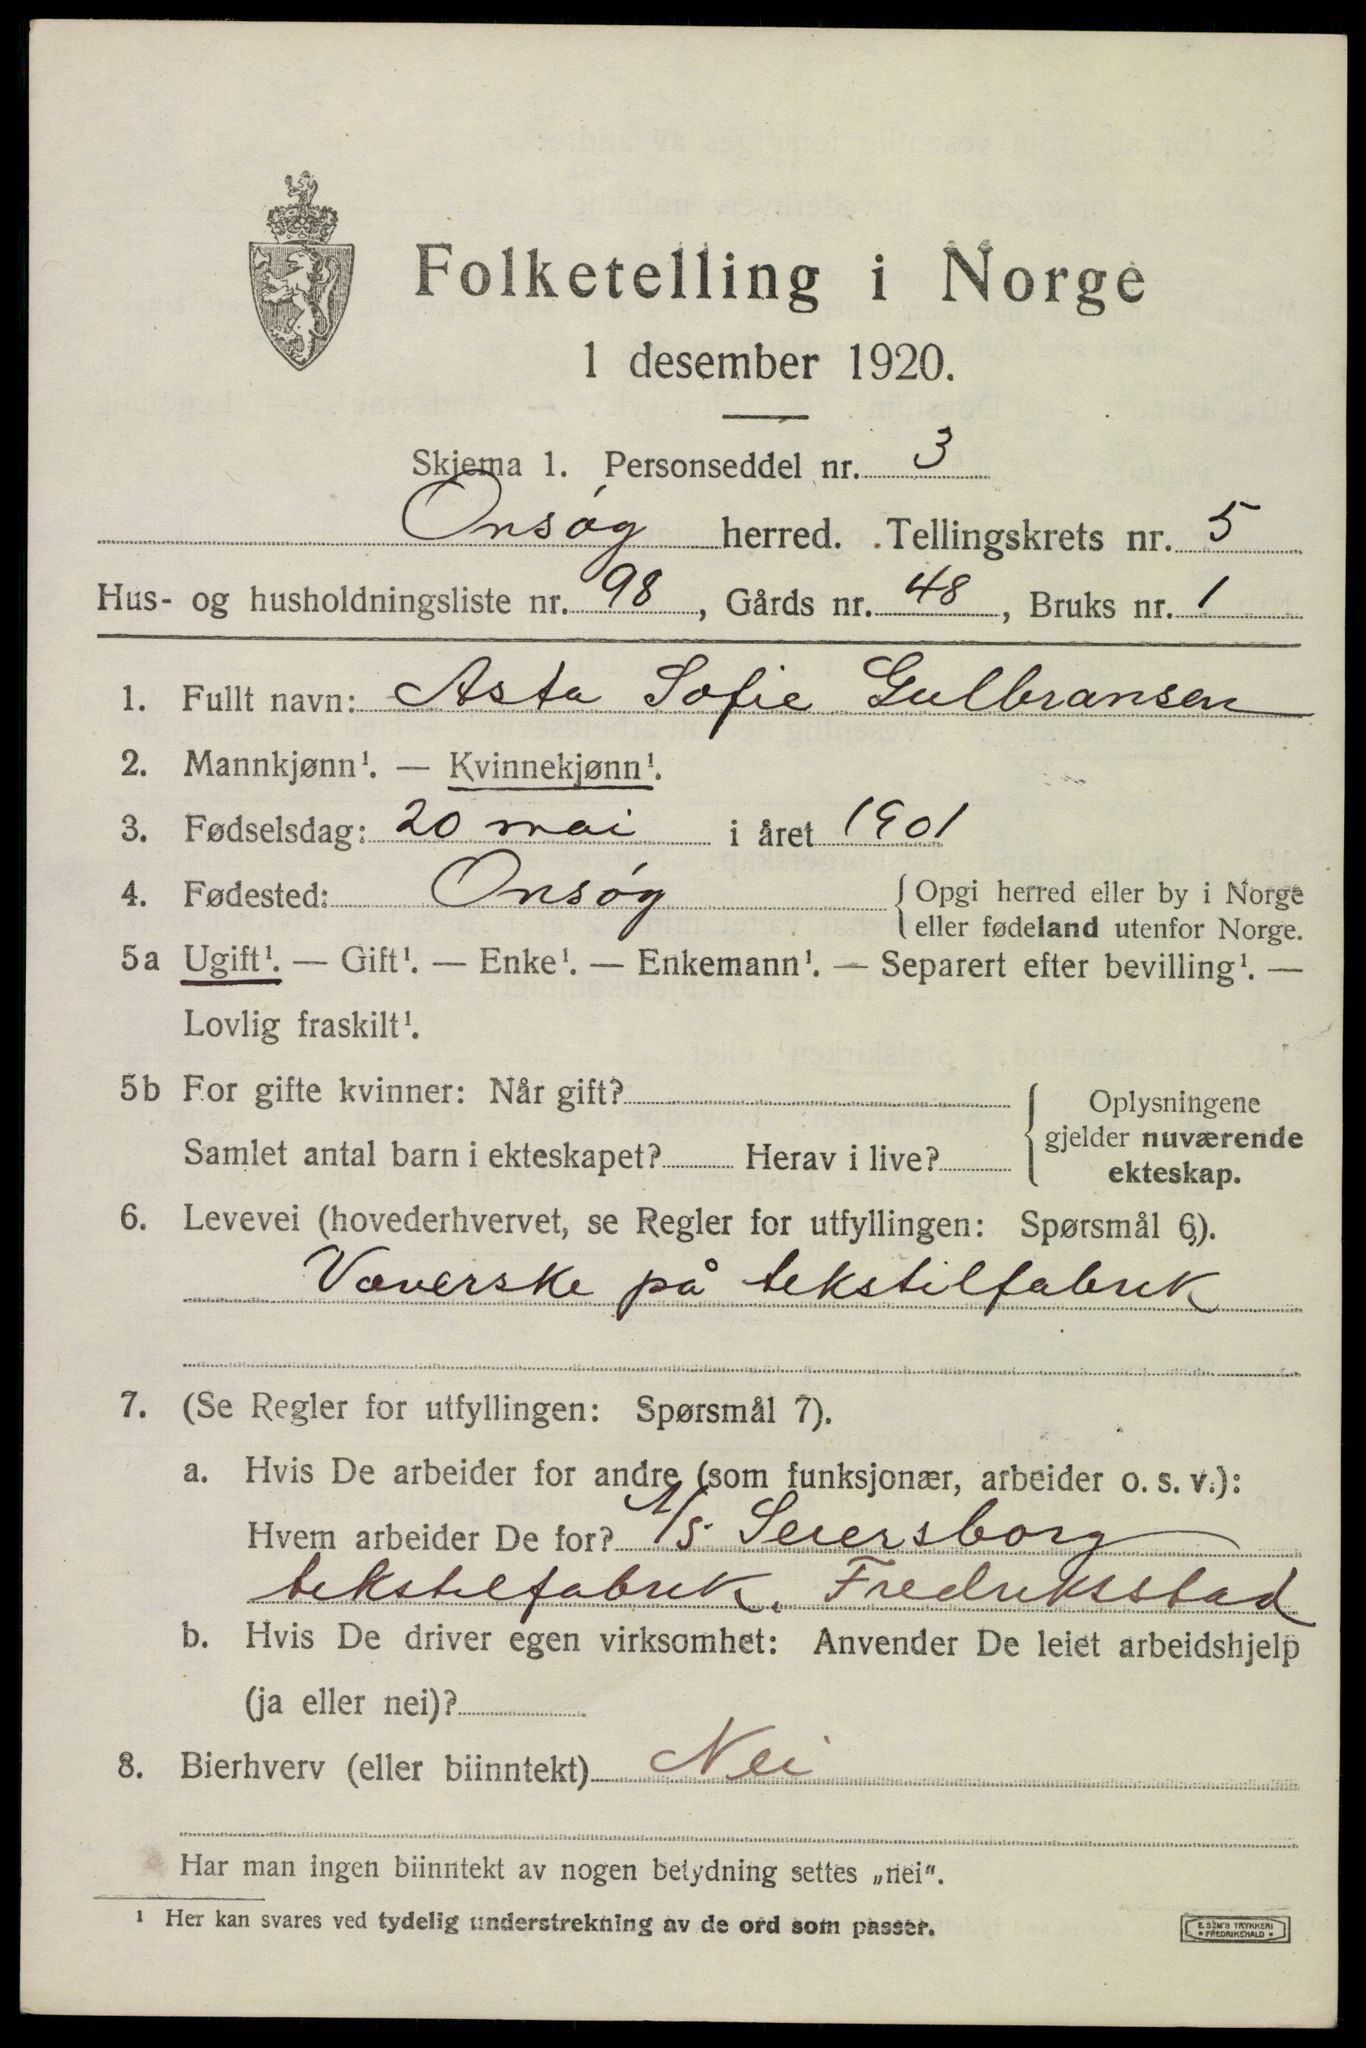 Folketelling i Norge
1 desember 1920.
Skjema 1. Personseddel nr. 3
Onsøy herred. Tellingskrets nr. 5
Hus- og husholdningsliste nr. 98, Gårds nr. 48, Bruks nr. 1
1. Fullt navn: Asta Sofie Gulbransen
2. Mannkjønn¹. — Kvinnekjønn¹.
3. Fødselsdag: 20 mai i året 1901
4. Fødested: Onsøy { Opgi herred eller by i Norge
eller fødeland utenfor Norge.
5a Ugift¹. — Gift¹. — Enke¹. — Enkemann¹. — Separert efter bevilling¹. —
Lovlig fraskilt¹.
5b For gifte kvinner: Når gift?
Samlet antal barn i ekteskapet? Herav i live?
Oplysningene
gjelder nuværende
ekteskap.
6. Levevei (hovederhvervet, se Regler for utfyllingen: Spørsmål 6).
Væverske på tekstilfabrik
7. (Se Regler for utfyllingen: Spørsmål 7).
a. Hvis De arbeider for andre (som funksjonær, arbeider o. s. v.):
Hvem arbeider De for? A/S. Seiersborg
tekstilfabrik. Fredriksstad
b. Hvis De driver egen virksomhet: Anvender De leiet arbeidshjelp
(ja eller nei)?
8. Bierhverv (eller biinntekt) Nei
Har man ingen biinntekt av nogen betydning settes „nei“.
¹ Her kan svares ved tydelig understrekning av de ord som passer.
E. SEM'S TRYKKERI
FREDRIKSHALD